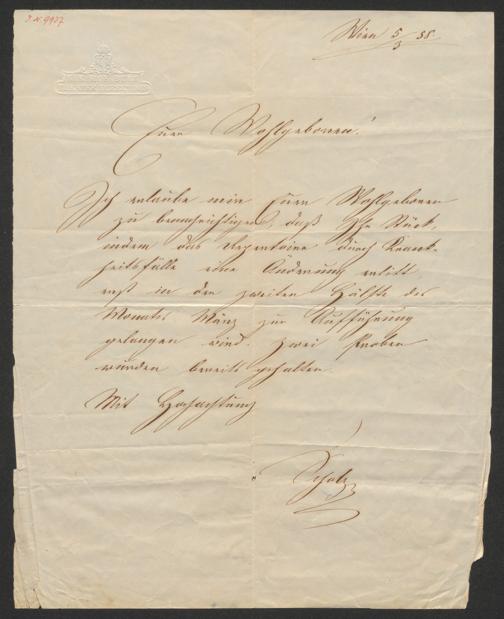 J. N. 9927
Wien 5/3 88
Euer Wohlgeboren!
Ich erlaube mir Euer Wohlgeboren
zu benachrichtigen, daß Ihr Stück,
indem das Repertoire durch Krank-
heitsfälle eine Änderung erlitt,
erst in der zweiten Hälfte des
Monates März zur Aufführung
gelangen wird. Zwei Proben
wurden bereits gehalten.
Mit Hochachtung
Scholz